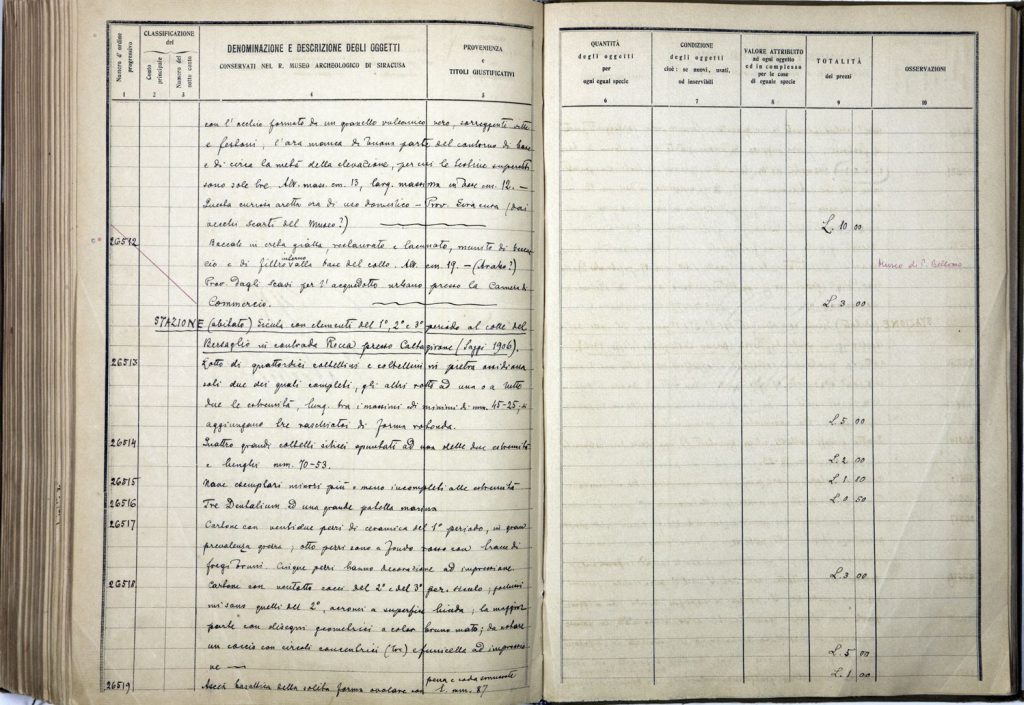 Numero d'ordine progressivo
CLASSIFICAZIONE
del
Conto principale
Numero del sotto conto
DENOMINAZIONE E DESCRIZIONE DEGLI OGGETTI
CONSERVATI NEL R. MUSEO ARCHEOLOGICO DI SIRACUSA
PROVENIENZA
e
TITOLI GIUSTIFICATIVI
1 2 3 4 5
con l'occhio formato da un granello vulcanico nero, sorreggente
e festoni; l'ara manca di buona parte del contorno di base
e di circa la metà della elevazione, per cui le bestine superstiti
sono sole tre. Alt. mass. cm. 13, larg. massima in base cm. 12. –
Questa curiosa aretta era di uso domestico – Prov. Siracusa (dai
vecchi scarti del Museo?)
26512 Boccale in creta gialla, restaurato e lacunato, munito di
cio e di filtro interno alla base del collo. Alt. cm 19. – (Arabo?)
Prov. dagli scavi per l'acquedotto urbano presso la Camera di
Commercio.
STAZIONE (abitato) Sicula con elementi del 1°, 2° e 3° periodo al colle del
Bersaglio in contrada Rocca presso Caltagirone (Saggi 1906).
26513 Lotto di quattordici coltellini e coltellini in pietra ossidiana
soli due dei quali completi, gli altri rotti ad una o a tutte
due le estremità, lung. tra i massimi ed i minimi di mm. 45-25; si
aggiungano tre raschiatoi di forma rotonda.
26514 Quattro grandi coltelli silicei spuntati ad una delle due estremità
e lunghi mm. 70-53.
26515 Nove esemplari minori più o meno incompleti alle estremità
26516 Tre Dentalium ed una grande patella marina
26517 Cartone con ventidue pezzi di ceramica del 1° periodo, in gran
prevalenza grossa; otto pezzi sono a fondo rosso con tracce di
fregi bruni. Cinque pezzi hanno decorazione ad impressione.
26518 Cartone con ventotto cocci del 2° e del 3° per. siculo;
mi sono quelli del 2°, acromi a superficie lucida; la maggior
parte con disegni geometrici a color bruno mato; da notare
un coccio con circoli concentrici (tre) e funicella ad impressio-
ne
26519 Ascia basaltica della solita forma ovolare con penna e coda
l. mm. 87
QUANTITÀ
degli oggetti
per
ogni egual specie
CONDIZIONE
degli oggetti
cioè: se nuovi, usati,
od inservibili
VALORE ATTRIBUITO
ad ogni oggetto
ed in complesso
per le cose
di eguale specie
TOTALITÀ
dei prezzi
OSSERVAZIONI
6 7 8 9 10
L. 10 00
Museo di P. Bellomo
L. 3 00
L. 5 00
L. 2 00
L. 1 80
L. 0 50
L. 3 00
L. 5 00
L. 1 00